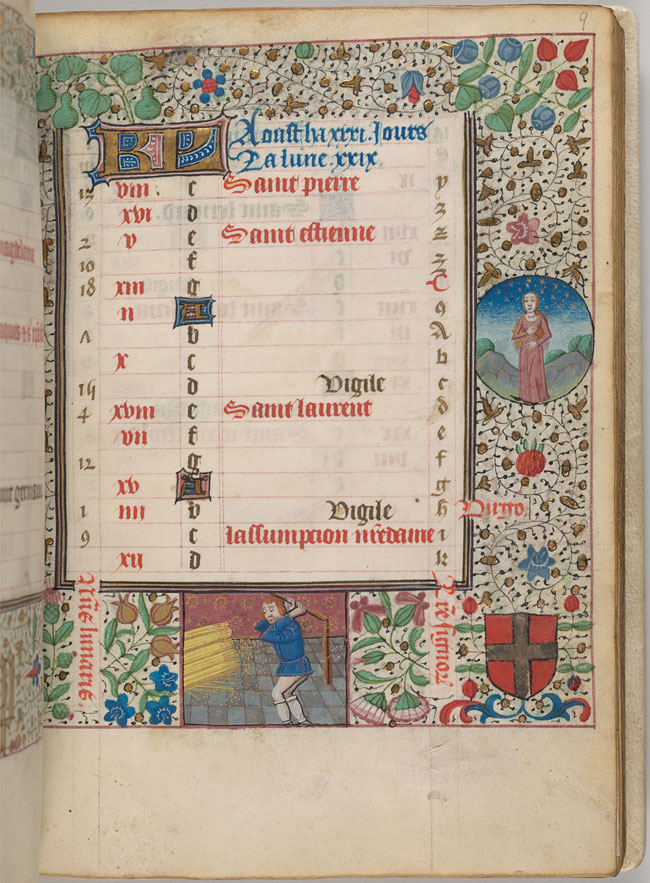 9
KL Aoust ha xxxi. Jours
La lune .xxix.
13 viii. c Saint pierre y
xvi d
2 v e Saint estienne z
10 f
18 xiii g C
ii A 9
b A
x c b
d Vigile c
4 xviii e Saint laurent d
vii f e
12 g f
xv A g
1 iiii b Vigile h Virgo.
9 c lassumpcion nredame i
xii d k
lunaris